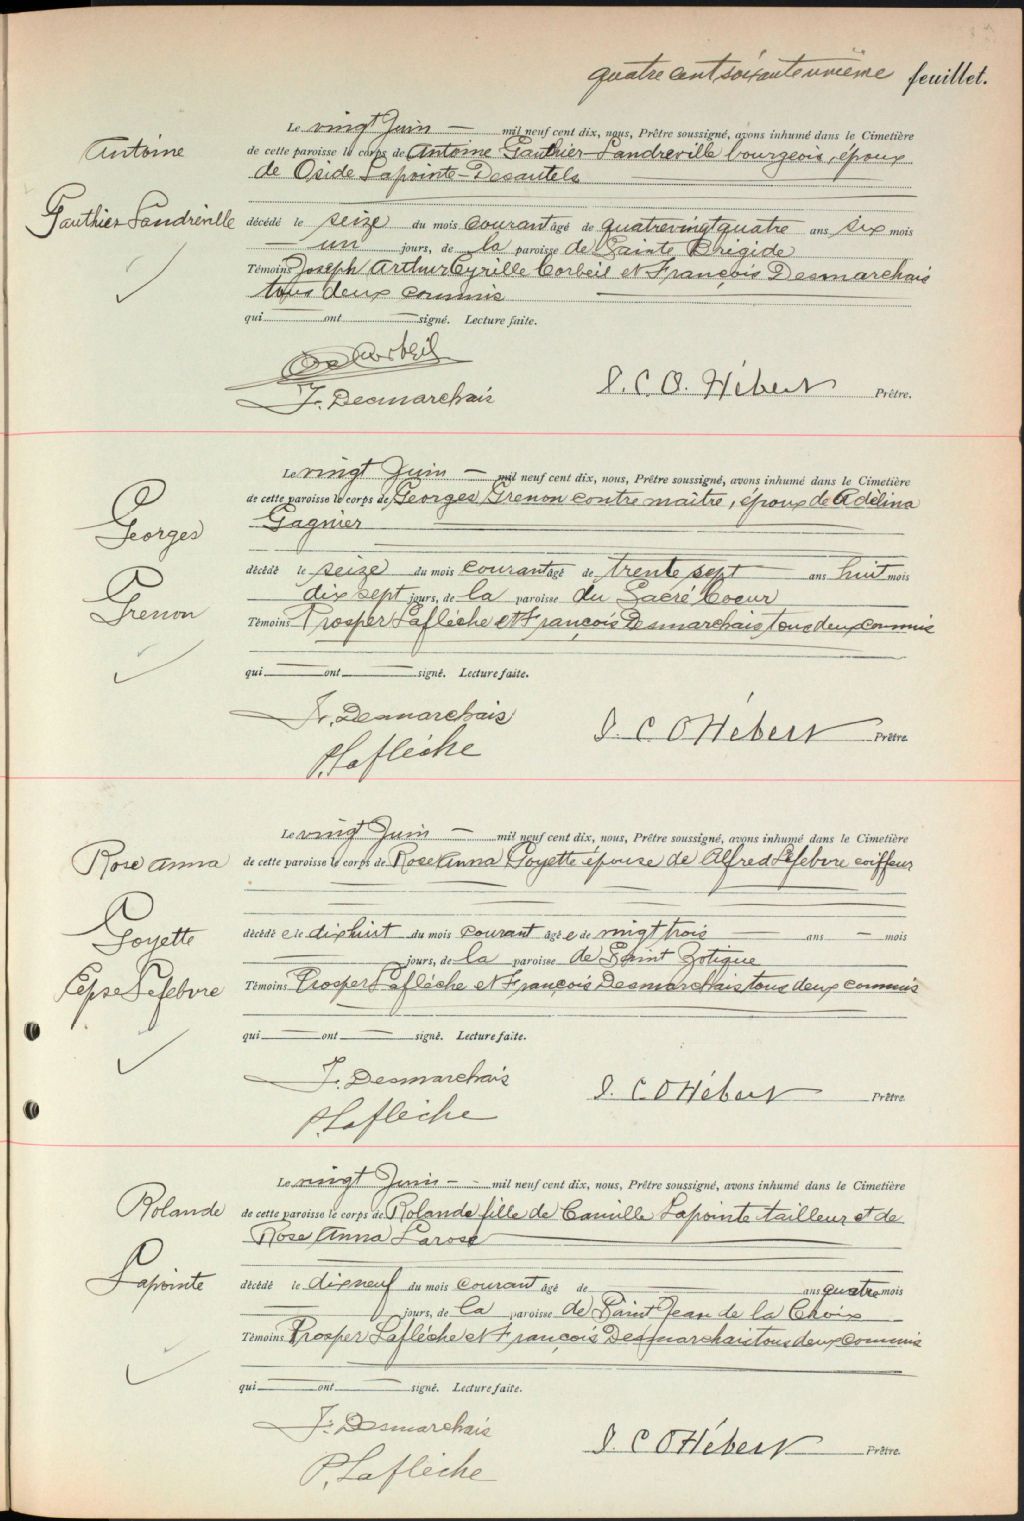 quatre cent soixante unième feuillet.
Le vingt Juin — mil neuf cent dix, nous, Prêtre soussigné, avons inhumé dans le Cimetière
Antoine
de cette paroisse le corps de Antoine Gauthier-Landreville bourgeois, époux
de Oside Lapointe-Desautels
Gauthier Landreville
décédé le seize du mois courant âgé de quatrevingt quatre ans six mois
— un jours, de la paroisse de Sainte Brigide
Témoins Joseph Arthur Cyrille Corbeil et François Desmarchais
tous deux commis
qui ont signé. Lecture faite.
Corbeil
F. Desmarchais
J. C. O. Hébert Prêtre.
Le vingt Juin — mil neuf cent dix, nous, Prêtre soussigné, avons inhumé dans le Cimetière
Georges
de cette paroisse le corps de Georges Grenon contremaître, époux de Adélina
Gagnier
Grenon
décédé le seize du mois courant âgé de trente sept ans huit mois
dix sept jours, de la paroisse du Sacré Coeur
Témoins Prosper Laflèche et François Desmarchais tous deux commis
qui — ont — signé. Lecture faite.
F. Desmarchais
P. Laflèche
J. C. O Hébert Prêtre.
Le vingt Juin — mil neuf cent dix, nous, Prêtre soussigné, avons inhumé dans le Cimetière
Rose Anna
de cette paroisse le corps de Rose Anna Goyette épouse de Alfred Lefebvre coiffeur
Goyette
Epse Lefebvre
décédé e le dix huit du mois courant âgé e de vingt trois — ans — mois
— jours, de la paroisse de Saint Zotique
Témoins Prosper Laflèche et François Desmarchais tous deux commis
qui — ont — signé. Lecture faite.
F. Desmarchais
P. Laflèche
J. C. O Hébert Prêtre.
Le vingt Juin - - mil neuf cent dix, nous, Prêtre soussigné, avons inhumé dans le Cimetière
Rolande
de cette paroisse le corps de Rolande fille de Camille Lapointe tailleur et de
Rose Anna Larose
Lapointe
décédé le dix neuf du mois courant âgé de — ans quatre mois
— jours, de la paroisse de Saint Jean de la Croix
Témoins Prosper Laflèche et François Desmarchais tous deux commis
qui — ont — signé. Lecture faite.
F. Desmarchais
P. Laflèche
J. C. O Hébert Prêtre.